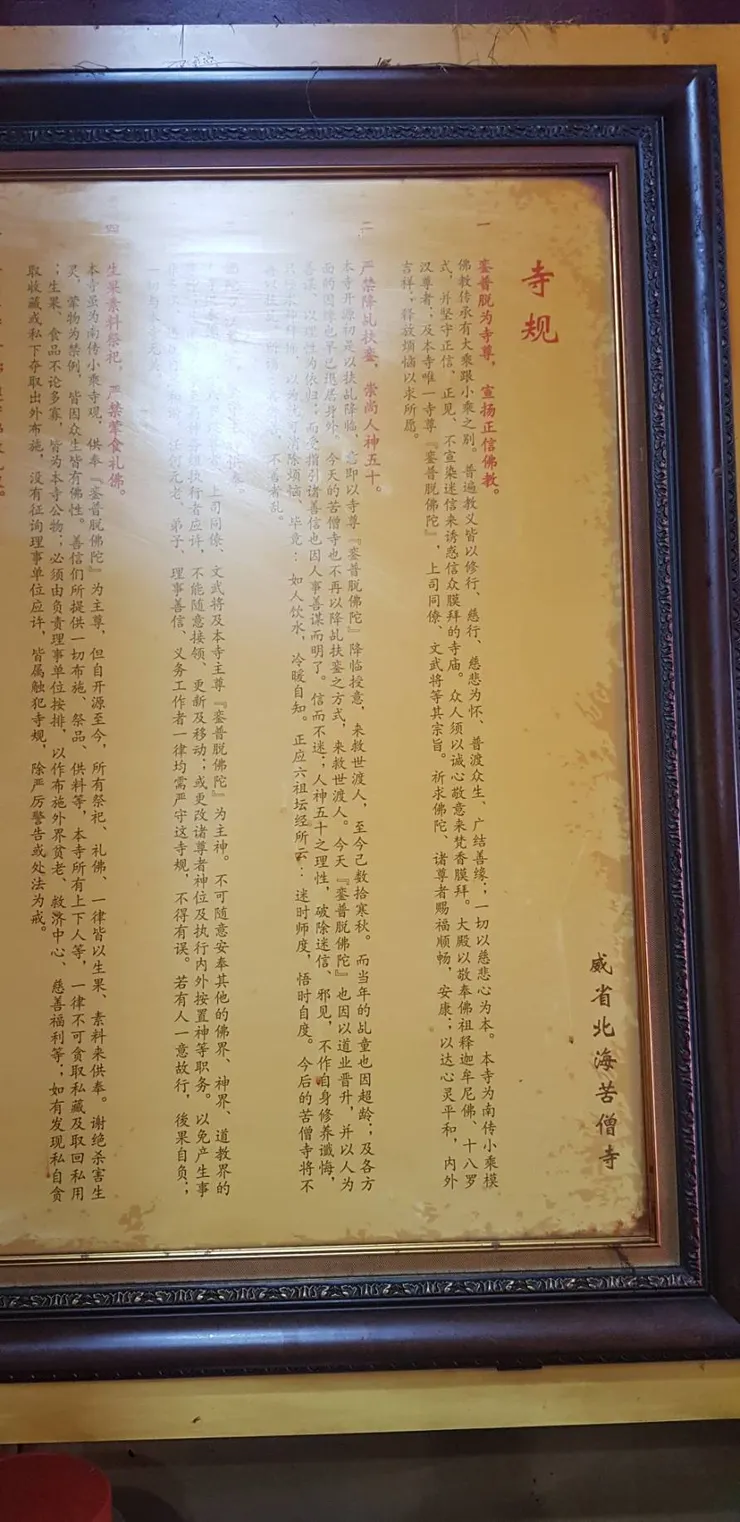 寺规
威省北海苦僧寺
一
銮普脱为寺尊，宣扬正信佛教。
佛教传承有大乘跟小乘之别。普遍教义皆以修行、慈行、慈悲为怀、普渡众生、广结善缘；一切以慈悲心为本。本寺为南传小乘模
式，并坚守正信、正见、不宣染迷信来诱惑信众膜拜的寺庙。众人须以诚心敬意来梵香膜拜。大殿以敬奉佛祖释迦牟尼佛、十八罗
汉尊者；及本寺唯一寺尊『銮普脱佛陀』，上司同僚、文武将等其宗旨。祈求佛陀、诸尊者赐福顺畅，安康；以达心灵平和，内外
吉祥；释放烦恼以求所愿。
二
严禁降乩扶銮，崇尚人神五十。
本寺开源初是以扶乩降临、意即以寺尊『銮普脱佛陀』降临授意，来救世渡人，至今己数拾寒秋。而当年的乩童也因超龄；及各方
面的因缘也早已退居身外、今天的苦僧寺也不再以降乩扶銮之方式，来救世渡人。今天『銮普脱佛陀』也因以道业晋升，并以人为
善谋、以理性为依归；而受指引诸善信也因人事善谋而明了。信而不迷；人神五十之理性，破除迷信、邪见，不作自身修养谶悔，
以为就可消除烦恼、毕竟：如人饮水，冷暖自知。正应六祖坛经所云：迷时师度，悟时自度。今后的苦僧寺将不
不看香乱。
上司同僚、文武将及本寺主尊『銮普脱佛陀』为主神。不可随意安奉其他的佛界、神界、道教界的
执行者应许，不能随意接领、更新及移动；或更改诸尊者神位及执行内外按置神等职务。以免产生事
任何元老、弟子、理事善信、义务工作者一律均需严守这寺规，不得有误。若有人一意故行，後果自负；
一切与本寺无关。
四
生果素料祭祀，严禁荤食礼佛。
本寺虽为南传小乘寺观，供奉『銮普脱佛陀』为主尊，但自开源至今，所有祭祀、礼佛、一律皆以生果、素料来供奉。谢绝杀害生
灵，荤物为禁例，皆因众生皆有佛性。善信们所提供一切布施、祭品、供料等，本寺所有上下人等，一律不可贪取私藏及取回私用
；生果、食品不论多寡，皆为本寺公物；必须由负责理事单位按排，以作布施外界贫老、救济中心、慈善福利等；如有发现私自贪
取收藏或私下夺取出外布施，没有征询理事单位应许，皆属触犯寺规，除严厉警告或处法为戒。